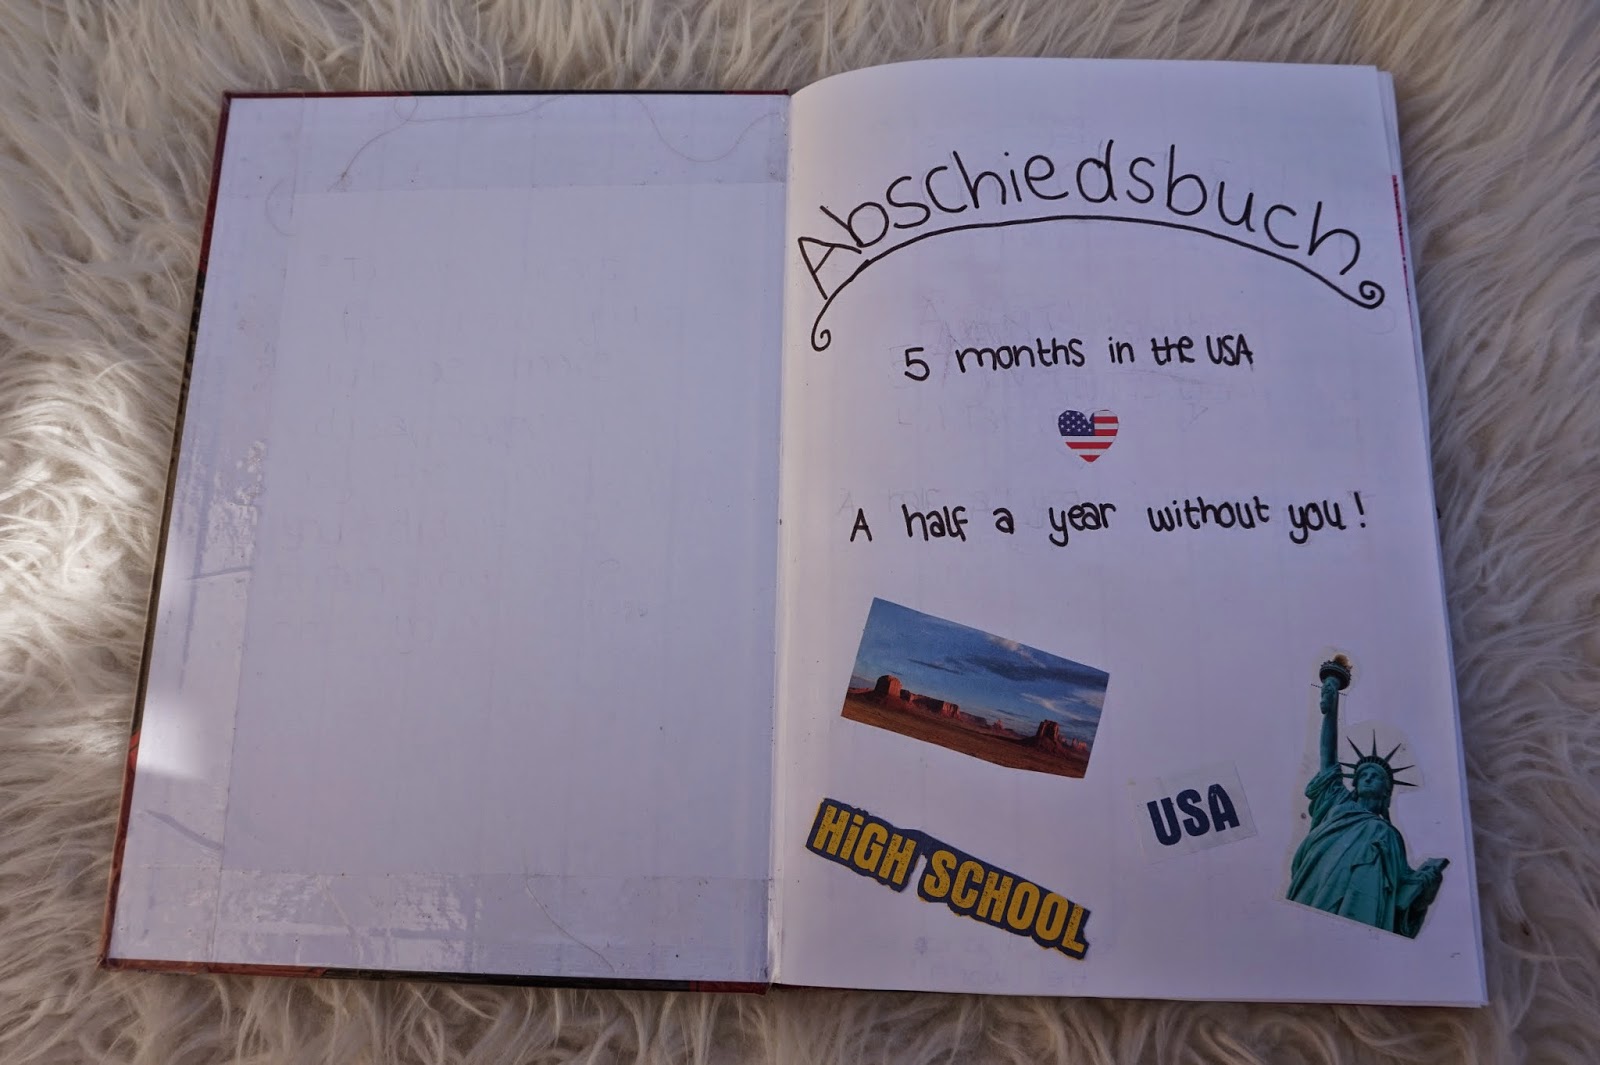 Abschiedsbuch
5 months in the USA
A half a year without you!
USA
HiGH SCHOOL